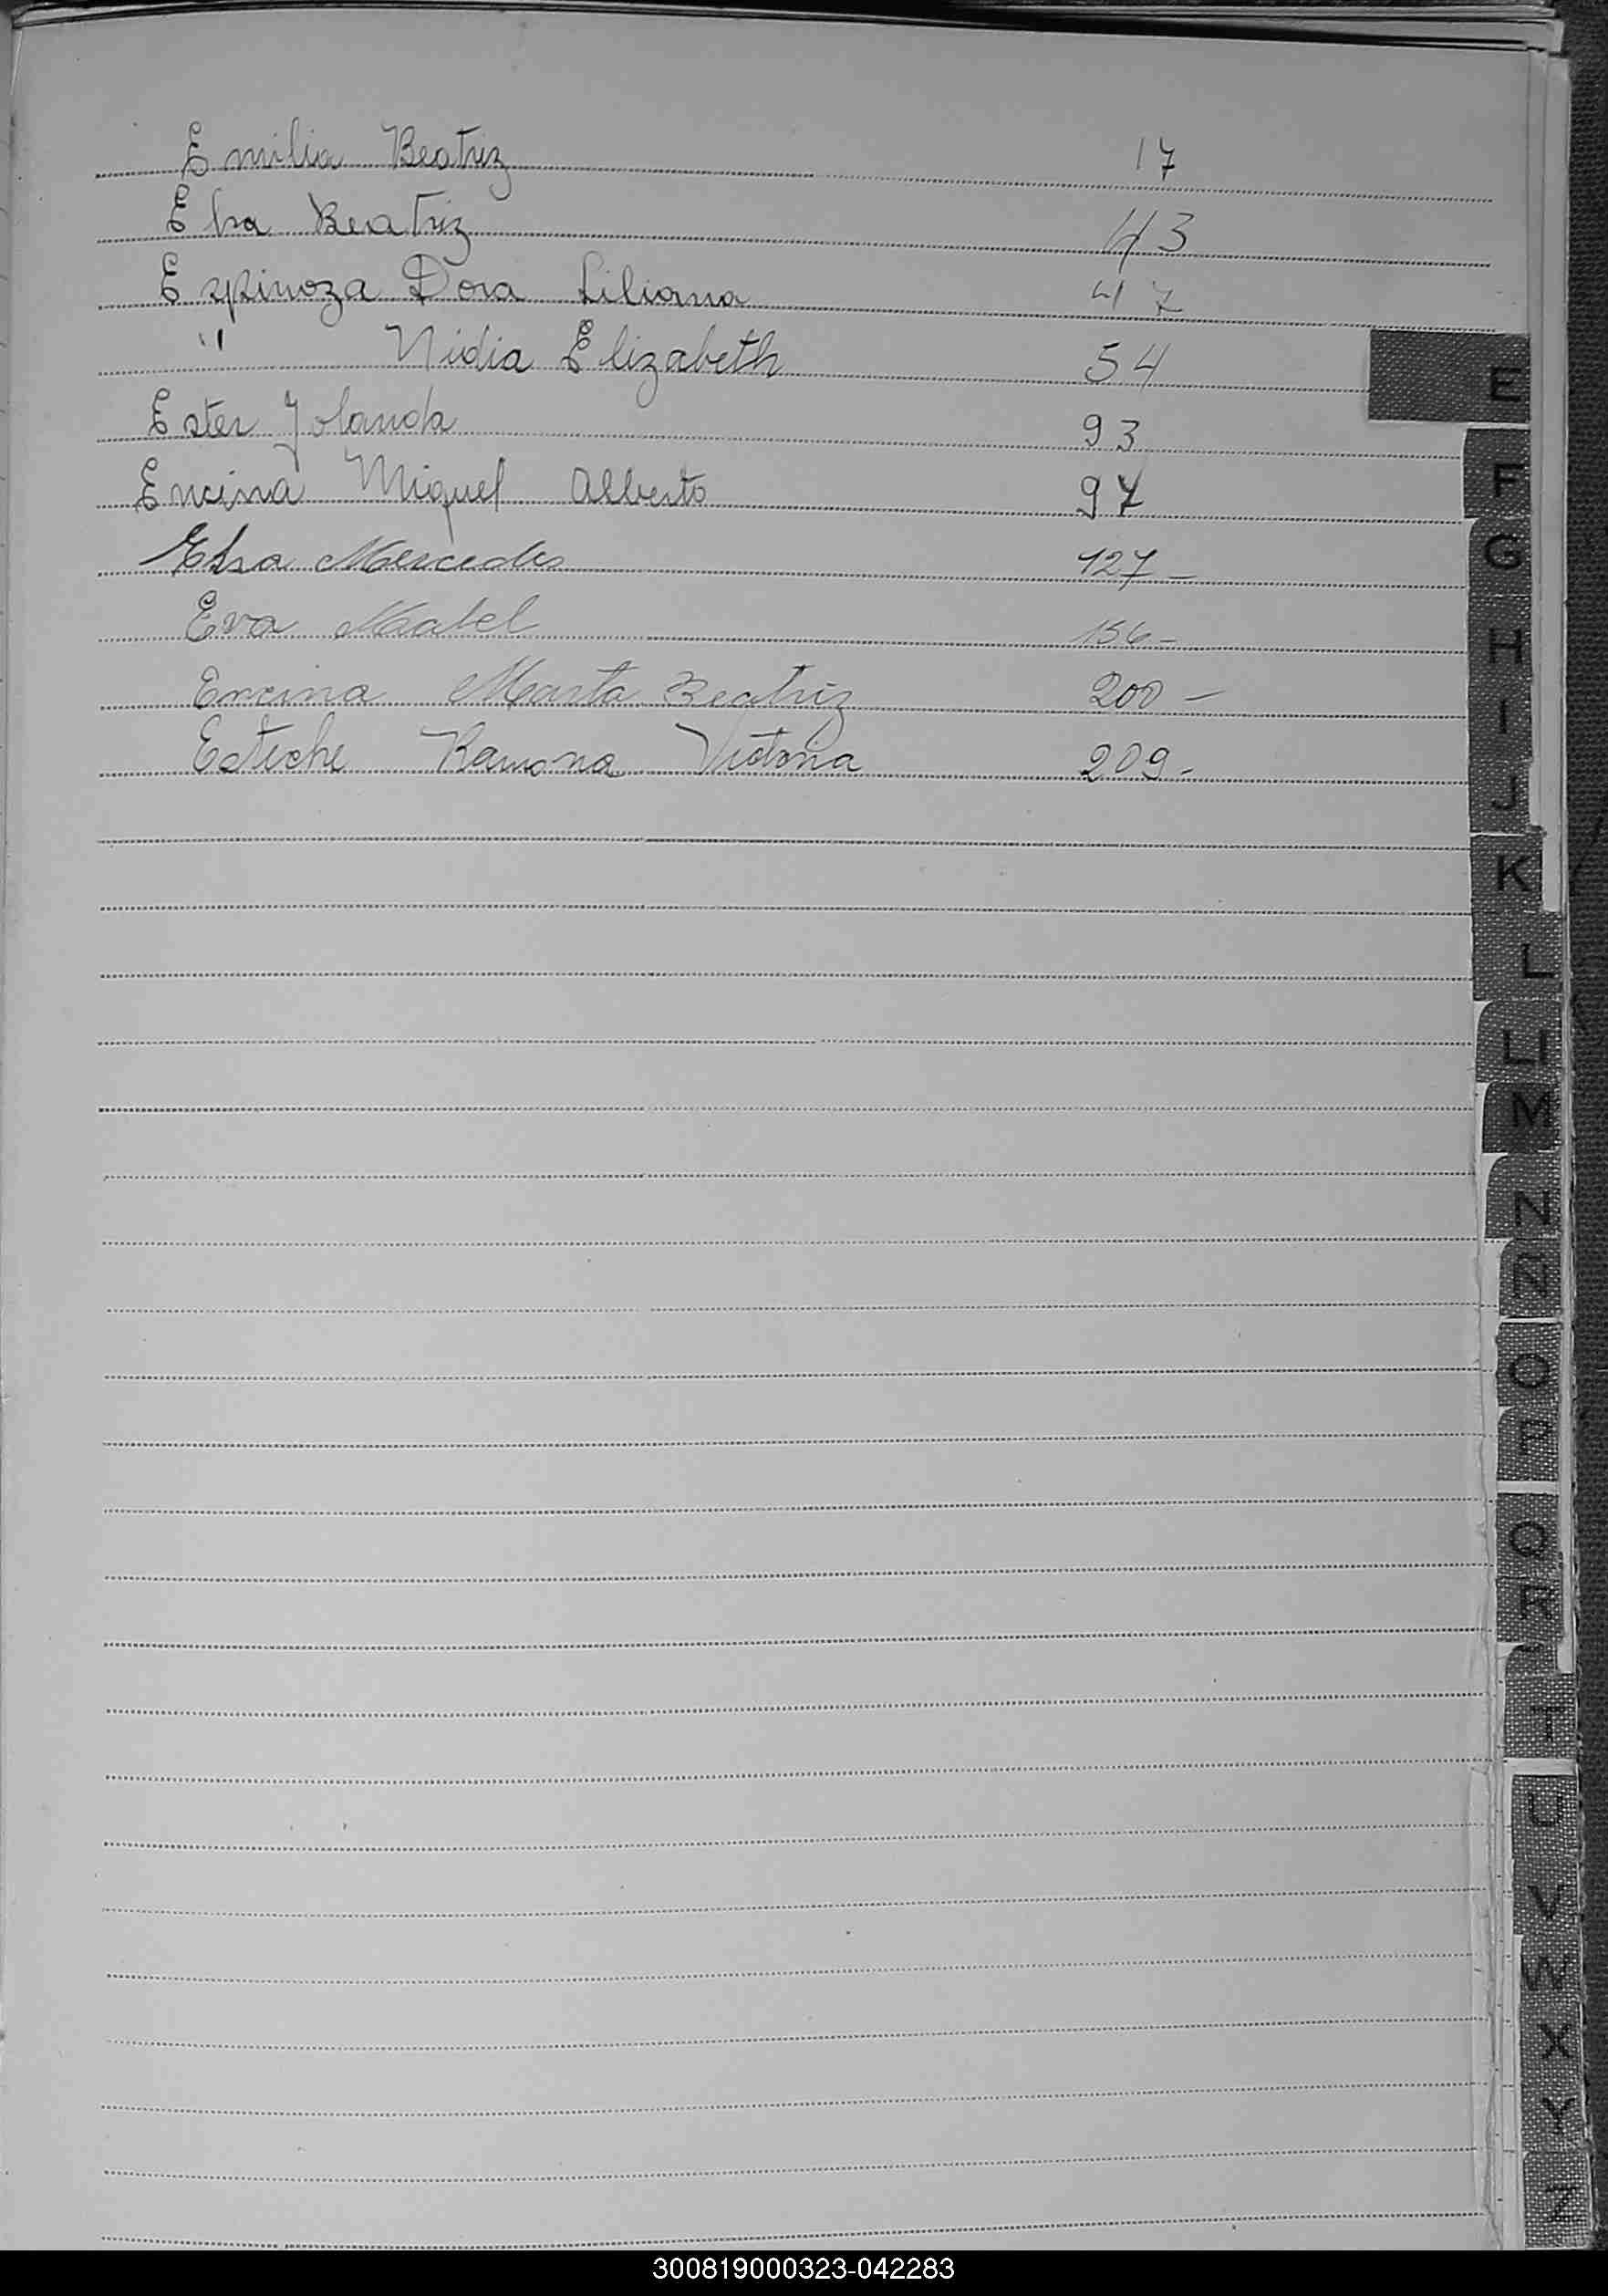 Emilia Beatriz 17
Elsa Beatriz 43
Espinoza Dora Liliana 47
" Nidia Elizabeth 54
Ester Yolanda 93
Encina Miguel Alberto 97
Elsa Mercedes 127-
Eva Mabel 156-
Encina Marta Beatriz 200-
Esteche Ramona Victoria 209-
E
F
G
H
I
J
K
L
LL
M
N
Ñ
O
P
Q
R
T
U
V
W
X
Y
Z
300819000323-042283